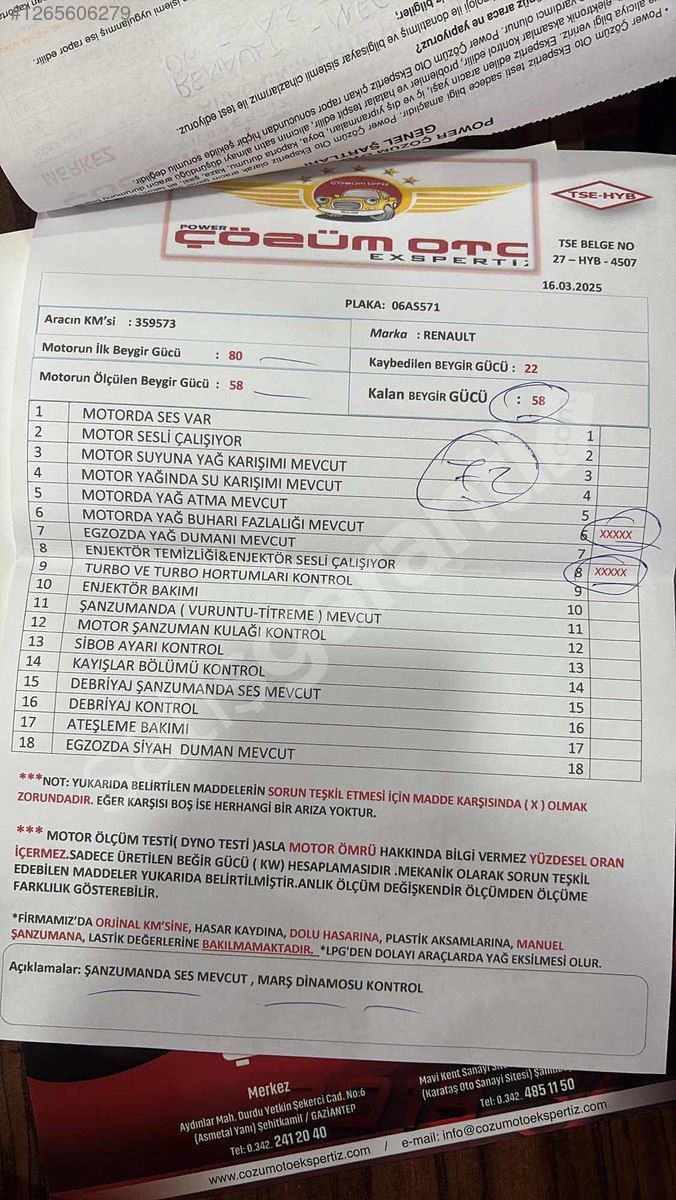 #1265606279
MERKEZ
POWER ÇÖZÜM OTO EKSPERTİZ
GENEL ŞARTLARI
POWER
ÇÖZÜM OTO
EKSPERTİZ
TSE-HYB
TSE BELGE NO
27 – HYB - 4507
16.03.2025
PLAKA: 06AS571
Aracın KM'si : 359573
Marka : RENAULT
Motorun İlk Beygir Gücü : 80
Kaybedilen BEYGİR GÜCÜ : 22
Motorun Ölçülen Beygir Gücü : 58
Kalan BEYGİR GÜCÜ : 58
72
1 MOTORDA SES VAR 1
2 MOTOR SESLİ ÇALIŞIYOR 2
3 MOTOR SUYUNA YAĞ KARIŞIMI MEVCUT 3
4 MOTOR YAĞINDA SU KARIŞIMI MEVCUT 4
5 MOTORDA YAĞ ATMA MEVCUT 5
6 MOTORDA YAĞ BUHARI FAZLALIĞI MEVCUT 6 XXXXX
7 EGZOZDA YAĞ DUMANI MEVCUT 7
8 ENJEKTÖR TEMİZLİĞİ&ENJEKTÖR SESLİ ÇALIŞIYOR 8 XXXXX
9 TURBO VE TURBO HORTUMLARI KONTROL 9
10 ENJEKTÖR BAKIMI 10
11 ŞANZUMANDA ( VURUNTU-TİTREME ) MEVCUT 11
12 MOTOR ŞANZUMAN KULAĞI KONTROL 12
13 SİBOB AYARI KONTROL 13
14 KAYIŞLAR BÖLÜMÜ KONTROL 14
15 DEBRİYAJ ŞANZUMANDA SES MEVCUT 15
16 DEBRİYAJ KONTROL 16
17 ATEŞLEME BAKIMI 17
18 EGZOZDA SİYAH DUMAN MEVCUT 18
***NOT: YUKARIDA BELİRTİLEN MADDELERİN SORUN TEŞKİL ETMESİ İÇİN MADDE KARŞISINDA ( X ) OLMAK
ZORUNDADIR. EĞER KARŞISI BOŞ İSE HERHANGİ BİR ARIZA YOKTUR.
*** MOTOR ÖLÇÜM TESTİ( DYNO TESTİ )ASLA MOTOR ÖMRÜ HAKKINDA BİLGİ VERMEZ YÜZDESEL ORAN
İÇERMEZ.SADECE ÜRETİLEN BEĞİR GÜCÜ ( KW) HESAPLAMASIDIR .MEKANİK OLARAK SORUN TEŞKİL
EDEBİLEN MADDELER YUKARIDA BELİRTİLMİŞTİR.ANLIK ÖLÇÜM DEĞİŞKENDİR ÖLÇÜMDEN ÖLÇÜME
FARKLILIK GÖSTEREBİLİR.
*FİRMAMIZ'DA ORJİNAL KM'SİNE, HASAR KAYDINA, DOLU HASARINA, PLASTİK AKSAMLARINA, MANUEL
ŞANZUMANA, LASTİK DEĞERLERİNE BAKILMAMAKTADIR. *LPG'DEN DOLAYI ARAÇLARDA YAĞ EKSİLMESİ OLUR.
Açıklamalar: ŞANZUMANDA SES MEVCUT , MARŞ DİNAMOSU KONTROL
Merkez
Aydınlar Mah. Durdu Yetkin Şekerci Cad. No:6
(Asmetal Yanı) Şehitkamil / GAZİANTEP
Tel: 0.342. 241 20 40
Mavi Kent Sanayi
(Karataş Oto Sanayi Sitesi)
Tel: 0.342. 485 11 50
www.cozumotoekspertiz.com / e-mail: info@cozumotoekspertiz.com